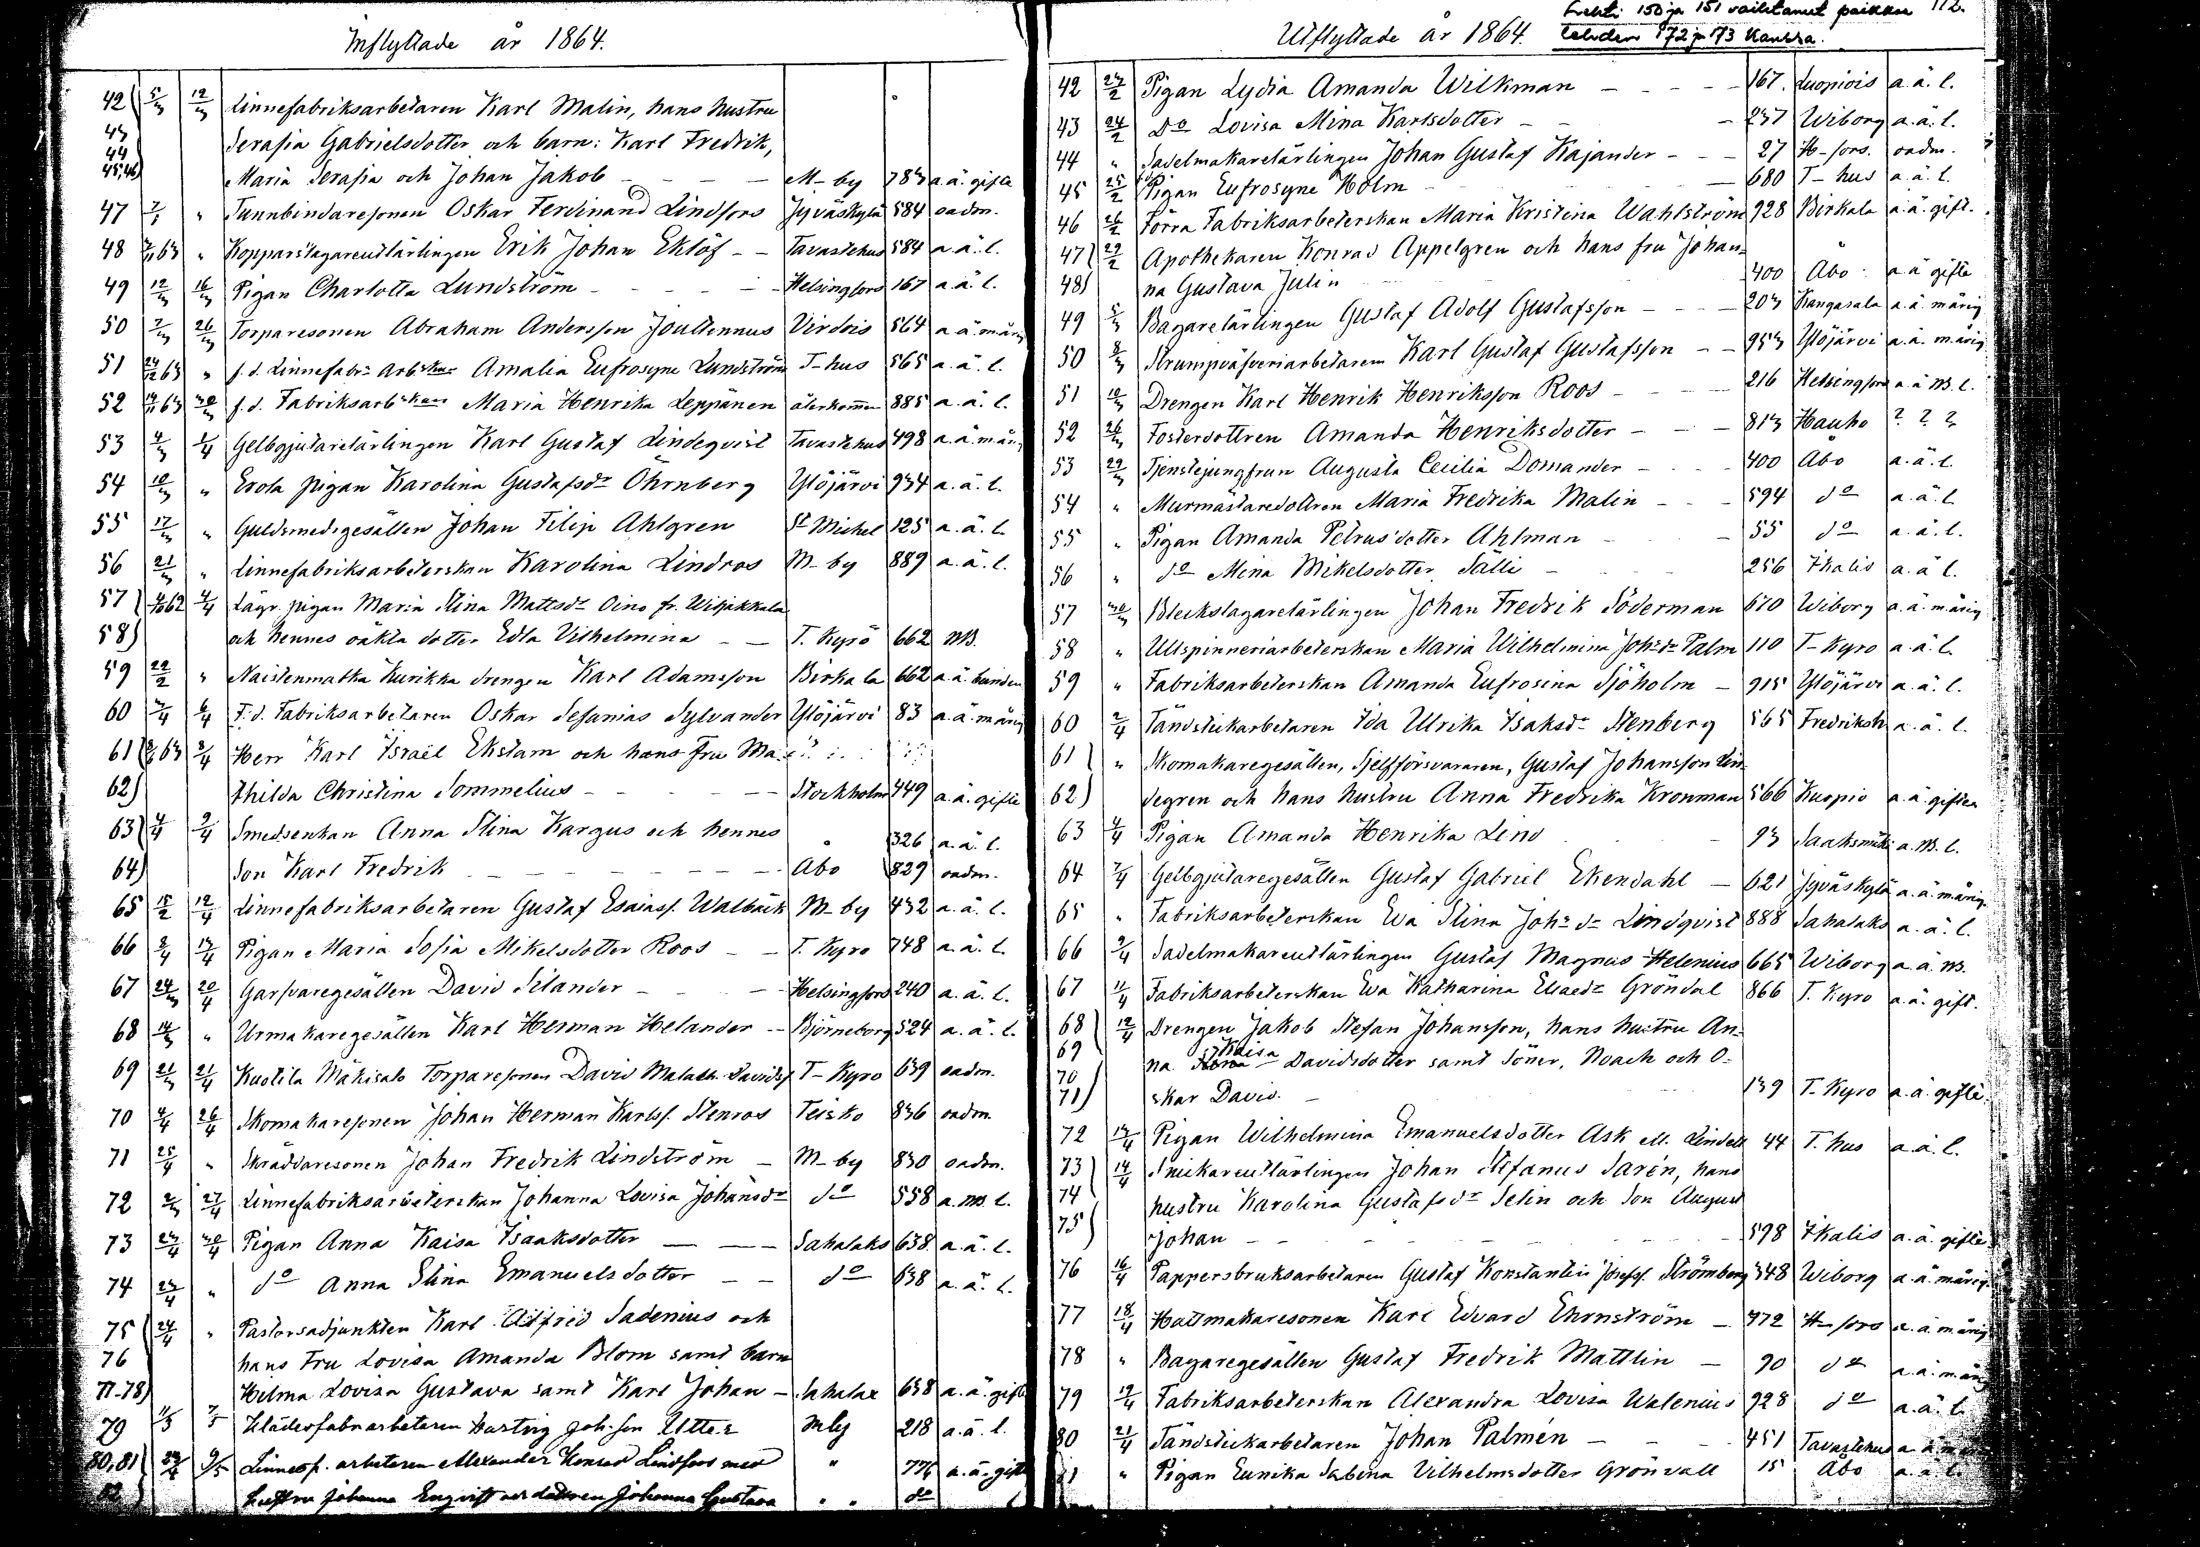 Inflyttade år 1864.
42 5/3 12/3 Linnefabriksarbetaren Karl Malin, hans hustru
43 Serafia Gabrielsdotter och barn: Karl Fredrik,
44
45,46) Maria Serafia och Johan Jakob - - - M-by 783 a.ä. gifte
47 7/1 " Tunnbindaresonen Oskar Ferdinand Lindfors Jyväskylä 584 oadm.
48 63 " Kopparslagareutlärlingen Erik Johan Eklöf - - Tavastehus 584 a.ä.l.
49 12/3 16/3 Pigan Charlotta Lundström - - - Helsingfors 167 a.ä.l.
50 7/3 26/3 Torparesonen Abraham Andersson Joultennus Virdois 564 a.ä. märig
51 63 " f.d. Linnefabrs Arbskan Amalia Eufrosyne Lundström T-hus 565 a.ä.l.
52 63 30/3 f.d. Fabriksarbskan Maria Henrika Leppänen återkommen 885 a.ä.l.
53 4/3 1/4 Gelbgjutarelärlingen Karl Gustaf Lindeqvist Tavastehus 498 a.ä. märig
54 10/3 " Erola pigan Karolina Gustafsdr Öhrnberg Ylöjärvi 934 a.ä.l.
55 17/3 " Guldsmedsgesällen Johan Filip Ahlgren St Michel 125 a.ä.l.
56 21/3 " Linnefabriksarbeterskan Karolina Lindros M-by 889 a.ä.l.
57 62 4/4 Lägr. pigan Maria Stina Mattsdr Oino fr. Wiljakkala
58) och hennes oäkta dotter Edla Vilhelmina - - T. Kyrö 662 NB.
59 22/2 " Naistenmatka Kurikka drengen Karl Adamsson Birkala 662 a.ä.
60 3/4 6/4 F.d. Fabriksarbetaren Oskar Sefanias Sylvander Ylöjärvi 83 a.ä. märig
61 63 8/4 Herr Karl Israel Ekstam och hans fru Ma-
62) thilda Christina Sommelius - - - Stockholm 449 a.ä. gifte
63 4/4 9/4 Smedsenkan Anna Stina Kargus och hennes " 326 a.ä.l.
64) Son Karl Fredrik - - - Åbo 829 oadm.
65 15/2 12/4 Linnefabriksarbetaren Gustaf Esaiass. Walbäck M-by 432 a.ä.l.
66 8/4 13/4 Pigan Maria Sofia Mikelsdotter Roos - - T. Kyro 748 a.ä.l.
67 24/3 20/4 Garfvaregesällen David Selander - - Helsingfors 240 a.ä.l.
68 14/3 " Urmakaregesällen Karl Herman Helander - - Björneborg 524 a.ä.l.
69 21/3 21/4 Kuotila Mäkisalo Torparesonen David Davidss. T-Kyro 639 oadm.
70 4/4 26/4 Skomakaresonen Johan Herman Karlss. Stenros Teisko 836 oadm.
71 25/4 " Skräddaresonen Johan Fredrik Lindström - M-by 830 oadm.
72 2/3 27/4 Linnefabriksarbeterskan Johanna Lovisa Johansdr do 558 a.NB.l.
73 23/4 30/4 Pigan Anna Kaisa Isaaksdotter - - Sahalaks 638 a.ä.l.
74 23/4 " do Anna Stina Emanuelsdotter - - do 638 a.ä.l.
75 24/4 " Pastorsadjunkten Karl Alfred Sadenius och
76 hans Fru Lovisa Amanda Blom samt barn
77-78) Hilma Lovisa Gustava samt Karl Johan - Sahalax 638 a.ä. gifte
79 11/3 7/5 Klädesfabrarbetaren Hartvig Joh:son Utter Mby 218 a.ä.l.
80,81 9/5 Linnesf. arbetaren Alexander Konrad Lindfors med " 776 a.ä. gifte
82 hustru Johanna Engvist och dottren Johanna Gustava " " do
Utflyttade år 1864.
Lehti 150 ja 151 vaihtanut paikkaa 112.
lehden 172 ja 173 kanssa.
42 23/2 Pigan Lydia Amanda Wilkman - - - 167. Luopiois a.ä.l.
43 24/2 Do Lovisa Mina Karlsdotter - - 237 Wiborg a.ä.l.
44 " Sadelmakarelärlingen Johan Gustaf Kajander - - 27 H-fors. oadm.
45 25/2 Pigan Eufrosyne Holm - - 680 T-hus a.ä.l.
46 26/2 Förra Fabriksarbeterskan Maria Kristina Wahlström 928 Birkala a.ä. gift.
47 29/2 Apothekaren Konrad Appelgren och hans fru Johan-
48) na Gustava Julin 400 Åbo a.ä gifte
49 5/3 Bagarelärlingen Gustaf Adolf Gustafsson - - 203 Kangasala a.ä. märig
50 8/3 Strumpväfveriarbetaren Karl Gustaf Gustafsson - - 953 Ylöjärvi a.ä. märig
51 10/3 Drengen Karl Henrik Henriksson Roos - - 216 Helsingfors a.ä NB.l.
52 26/3 Fosterdottren Amanda Henriksdotter - - 813 Hauho ? ? ?
53 29/3 Tjenstejungfrun Augusta Cecilia Domander - - 400 Åbo a.ä.l.
54 " Murmästaredottren Maria Fredrika Malin - - 594 do a.ä.l.
55 " Pigan Amanda Petrusdotter Ahlman - - 55 do a.ä.l.
56 " do Mina Mikelsdotter Sälli - 256 Ikalis a.ä l.
57 30/3 Bleckslagarelärlingen Johan Fredrik Söderman 670 Wiborg a.ä. märig
58 " Ullspinneriarbeterskan Maria Wilhelmina Johsdr Palm 110 T-Kyro a.ä.l.
59 " Fabriksarbeterskan Amanda Eufrosina Sjöholm - 915 Ylöjärvi a.ä.l.
60 2/4 Tändstickarbetaren Ida Ulrika Isaksdr Stenberg 565 Fredriksh a.ä.l.
61 " Skomakaregesällen, Sjelfförsvararen, Gustaf Johansson Lin-
62) degren och hans hustru Anna Fredrika Kronman 566 Kuopio a.ä giftea
63 4/4 Pigan Amanda Henrika Lind 93 Saaksmäki a.NB.l.
64 7/4 Gelbgjutaregesällen Gustaf Gabriel Ekendahl - 621 Jyväskylä a.ä märig.
65 " Fabriksarbeterskan Eva Stina Johs dr Lindqvist 888 Sahalaks a.ä.l.
66 9/4 Sadelmakareutlärlingen Gustaf Magnus Helenius 665 Wiborg a.ä.NB.
67 11/4 Fabriksarbeterskan Eva Katharina Eliaedr Gröndal 866 T. Kyro a.ä. gift.
68 12/4 Drengen Jakob Stefan Johansson, hans hustru An-
69 na Kaisa Davidsdotter samt Söner, Noach och O-
70
71) skar David. - 139 T-Kyro a.ä. gifte.
72 13/4 Pigan Wilhelmina Emanuelsdotter Ask ell. Lindell 44 T.hus a.ä.l.
73 14/4 Snickareutlärlingen Johan Stefanus Sarén, hans
74 hustru Karolina Gustafsdr Selin och Son August
75) Johan - - - 598 Ikalis a.ä. gifte
76 16/4 Pappersbruksarbetaren Gustaf Konstantin Josefss. Strömberg 348 Wiborg a.ä märig.
77 18/4 Hattmakaresonen Karl Edvard Ehrnström - 772 H-fors a.ä. märig
78 " Bagaregesällen Gustaf Fredrik Mattlin - 90 do a.ä. märig
79 19/4 Fabriksarbeterskan Alexandra Lovisa Walenius 928 do a.ä.l.
80 21/4 Tändstickarbetaren Johan Palmén - - 451 Tavastehus a.ä
81 " Pigan Eunika Sabina Vilhelmsdotter Grönvall 15 Åbo a.ä.l.